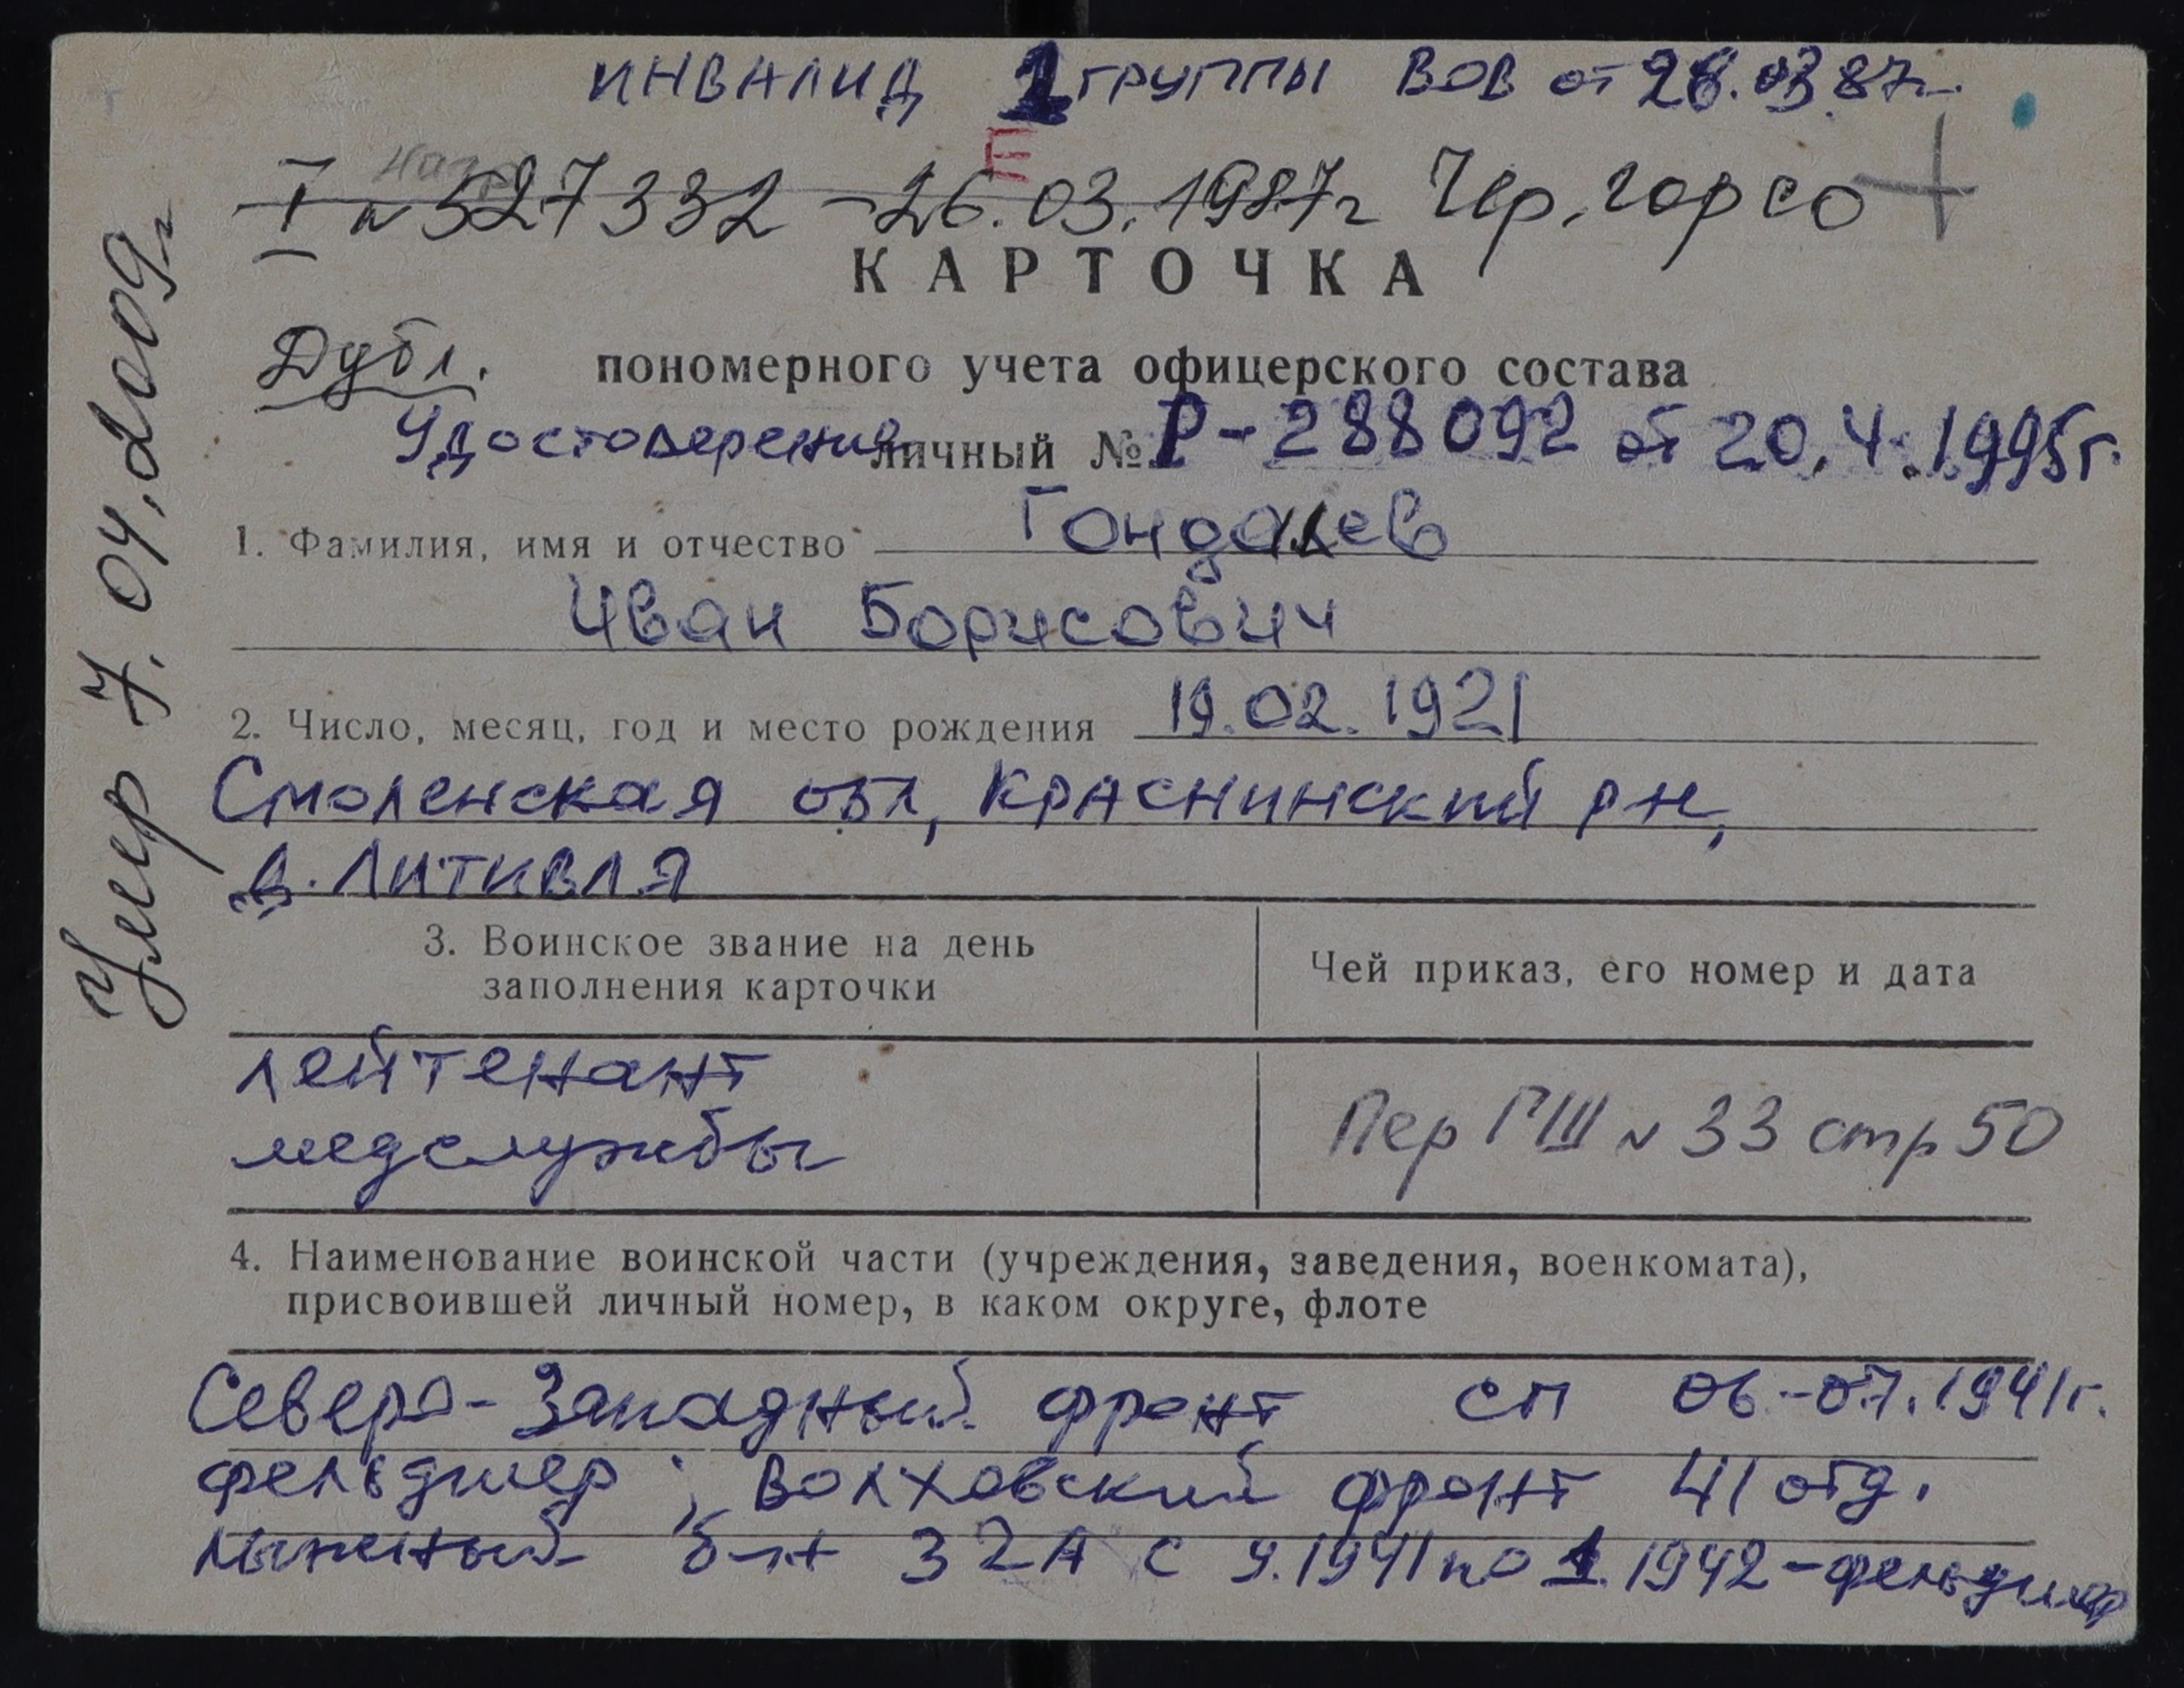 ИНВАЛИД 1 ГРУППЫ ВОВ от 26.03.87г.
Е
I № 527332 – 26.03.1987г Чер. горсо
КАРТОЧКА
Дубл. пономерного учета офицерского состава
Удостоверение личный № Р-288092 от 20.4.1995г.
1. Фамилия, имя и отчество Гондалев
Иван Борисович
2. Число, месяц, год и место рождения 19.02.1921
Смоленская обл, Краснинский р-н,
д. Литивля
3. Воинское звание на день
заполнения карточки
Чей приказ, его номер и дата
лейтенант
медслужбы
Пер ГШ № 33 стр 50
4. Наименование воинской части (учреждения, заведения, военкомата),
присвоившей личный номер, в каком округе, флоте
Северо-Западный фронт СП 06-07.1941г.
фельдшер; Волховский фронт 41 отд.
лыжный б-н 32А с 9.1941 по 1.1942-фельдшер
Умер 7.04.2009г